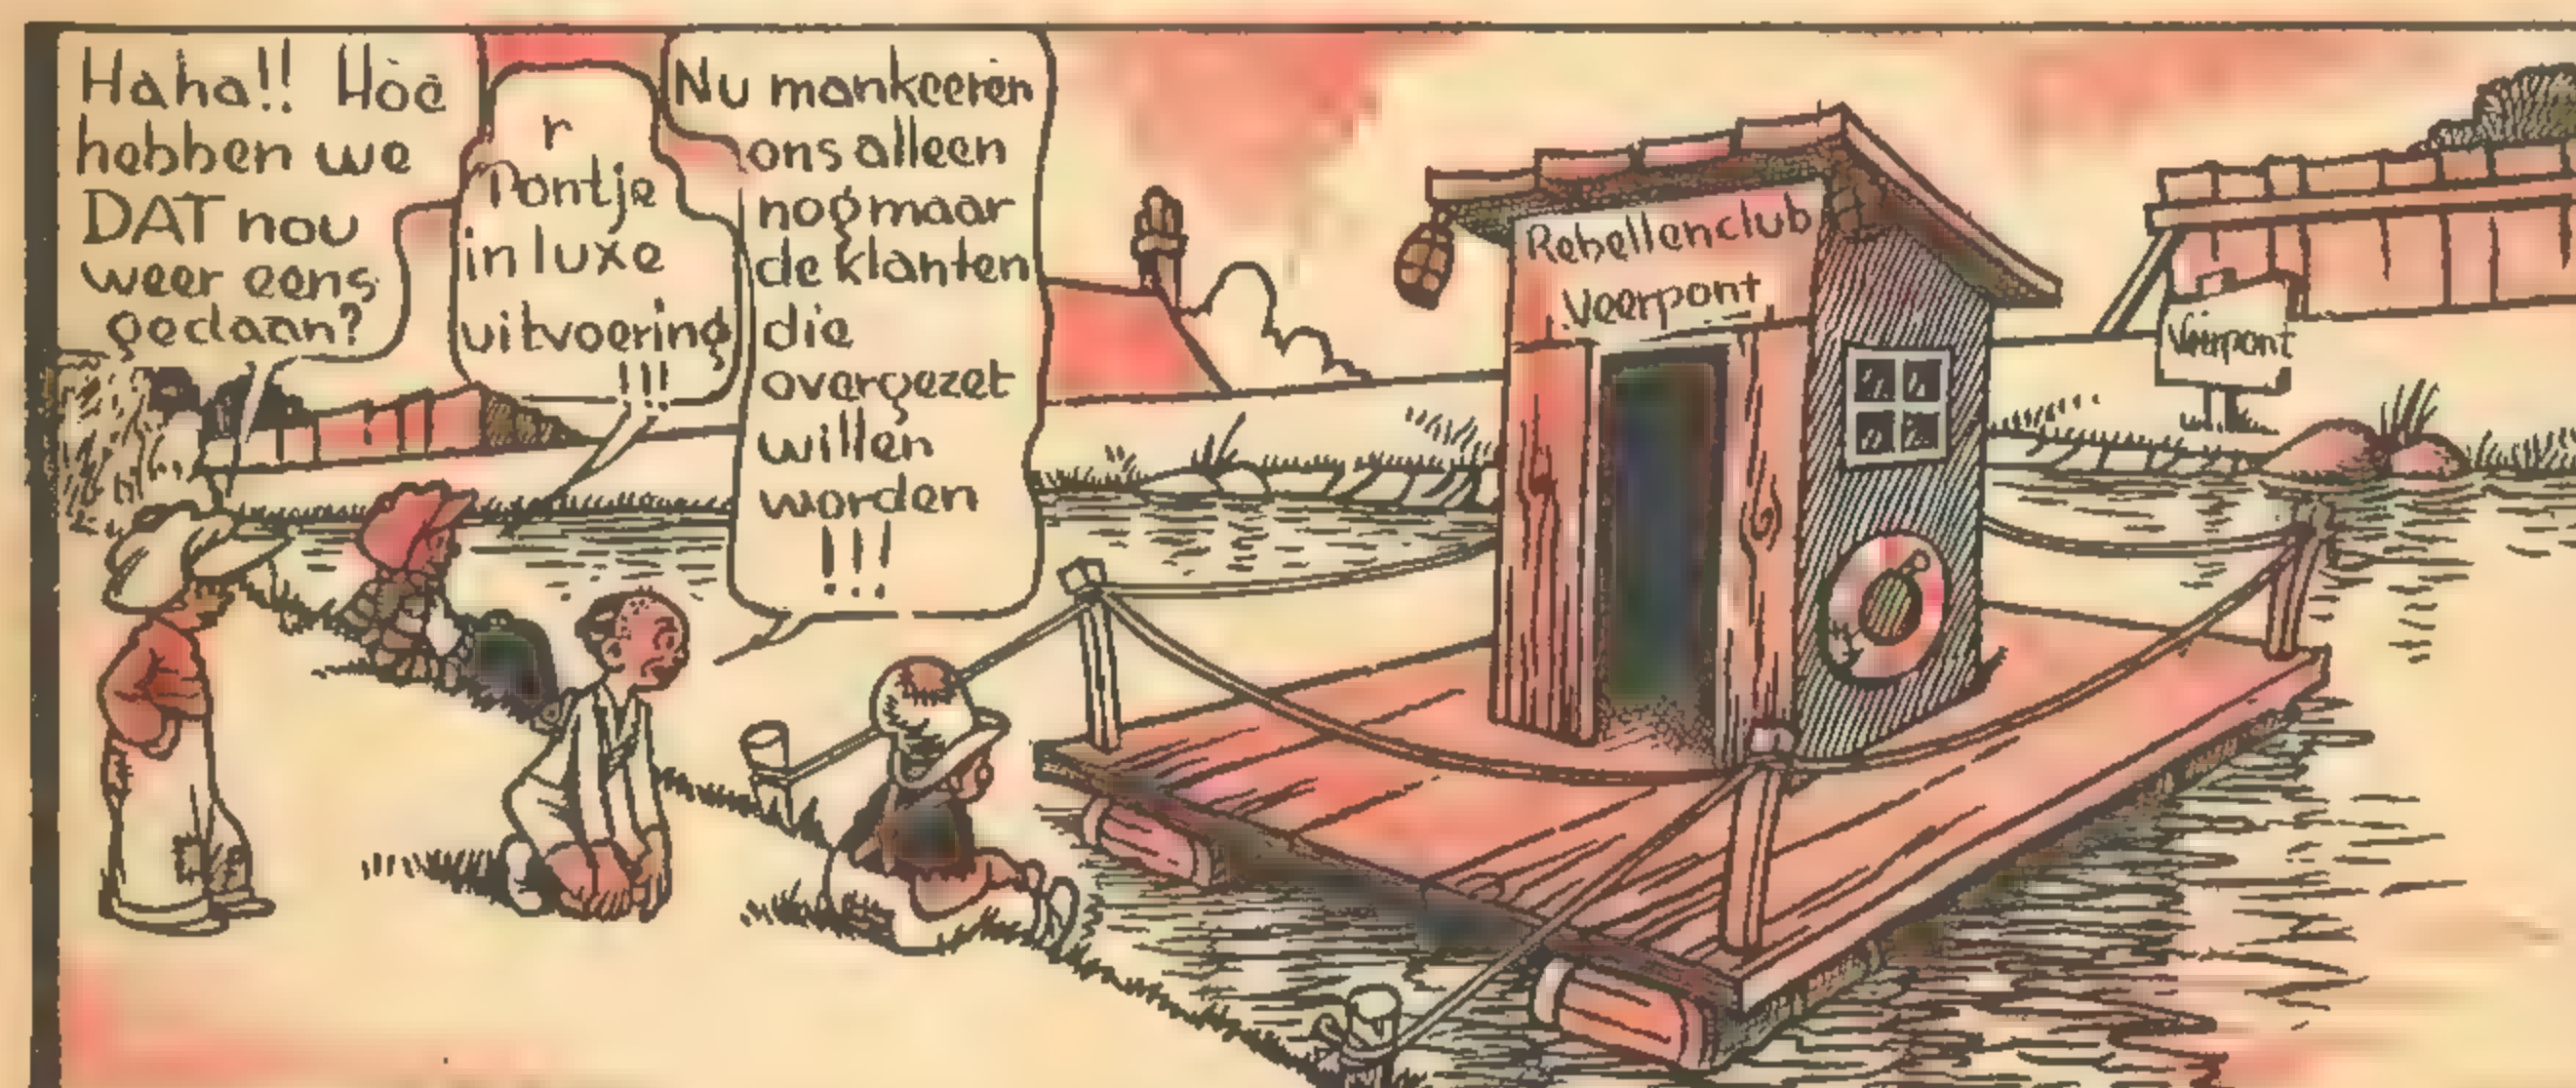 Haha!! Hòe
hebben we
DAT nou
weer eens
gedaan?
r
Pontje
in luxe
uitvoering
!!!
Nu mankeeren
ons alleen
nog maar
de klanten
die
overgezet
willen
worden
!!!
Rebellenclub
Veerpont
Veerpont